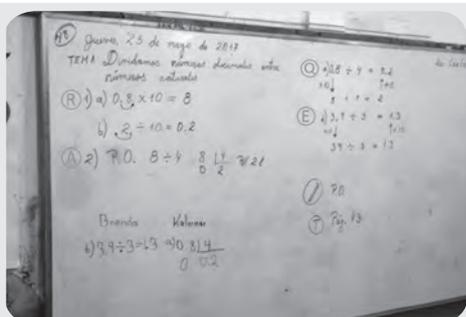 Jueves, 25 de mayo de 2017
TEMA Dividamos números decimales entre
números naturales
(R) 1) a) 0,8 x 10 = 8
b) 2 ÷ 10 = 0.2
(A) 2) P.O. 8 ÷ 4 8 4 R/ 2 l
0 2
Brenda
b) 3,9 ÷ 3 = 1.3 a) 0.8 4
0 0.2
(Q) a) 0.8 ÷ 4 = 0.2
8 ÷ 4 = 2
(E) b) 3,9 ÷ 3 = 1.3
39 ÷ 3 = 13
P.O.
(T) Pág. 93